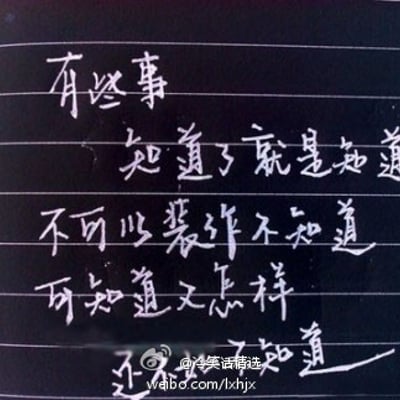 有些事
知道了就是知道
不可以装作不知道
可知道又怎样
还不如不知道
@冷笑话精选
weibo.com/lxhjx